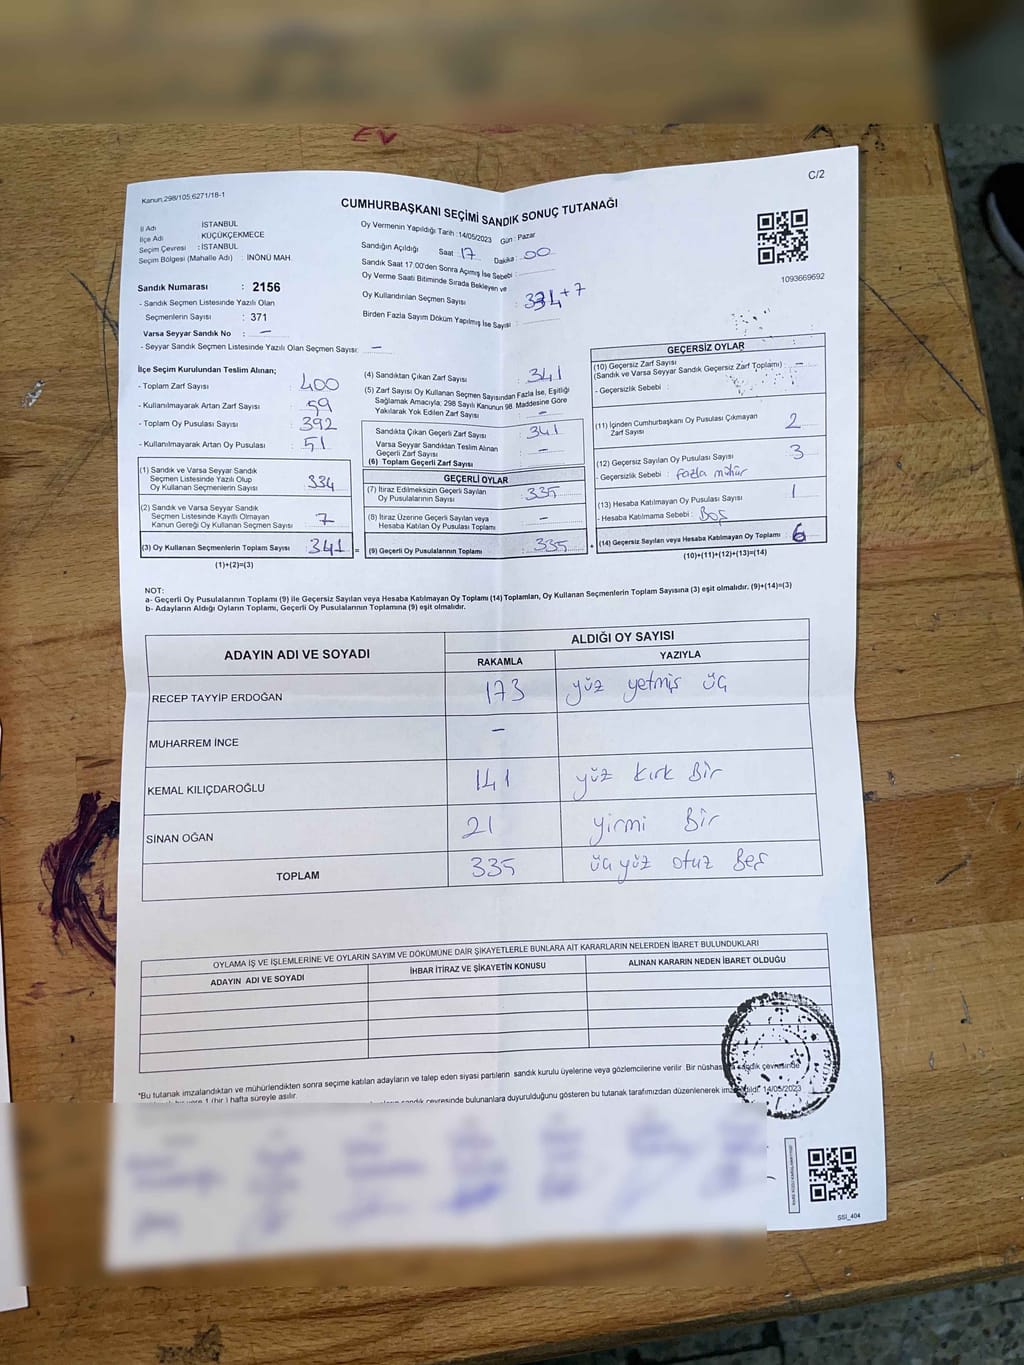 EV
C/2
Kanun,298/105;6271/18-1
CUMHURBAŞKANI SEÇİMİ SANDIK SONUÇ TUTANAĞI
İl Adı : İSTANBUL
İlçe Adı : KÜÇÜKÇEKMECE
Seçim Çevresi : İSTANBUL
Seçim Bölgesi (Mahalle Adı) : İNÖNÜ MAH.
Oy Vermenin Yapıldığı Tarih :14/05/2023 Gün : Pazar
Sandığın Açıldığı Saat 17 Dakika : 00
Sandık Saat 17.00'den Sonra Açımış İse Sebebi :
Oy Verme Saati Bitiminde Sırada Bekleyen ve
Oy Kullandırılan Seçmen Sayısı : 334+7
Birden Fazla Sayım Döküm Yapılmış İse Sayısı :
1093669692
Sandık Numarası : 2156
- Sandık Seçmen Listesinde Yazılı Olan
Seçmenlerin Sayısı : 371
Varsa Seyyar Sandık No : –
- Seyyar Sandık Seçmen Listesinde Yazılı Olan Seçmen Sayısı: –
İlçe Seçim Kurulundan Teslim Alınan;
- Toplam Zarf Sayısı : 400
- Kullanılmayarak Artan Zarf Sayısı : 59
- Toplam Oy Pusulası Sayısı : 392
- Kullanılmayarak Artan Oy Pusulası : 51
(1) Sandık ve Varsa Seyyar Sandık
Seçmen Listesinde Yazılı Olup
Oy Kullanan Seçmenlerin Sayısı : 334
(2) Sandık ve Varsa Seyyar Sandık
Seçmen Listesinde Kayıtlı Olmayan
Kanun Gereği Oy Kullanan Seçmen Sayısı : 7
(3) Oy Kullanan Seçmenlerin Toplam Sayısı : 341 =
(1)+(2)=(3)
(4) Sandıktan Çıkan Zarf Sayısı : 341
(5) Zarf Sayısı Oy Kullanan Seçmen Sayısından Fazla İse, Eşitliği
Sağlamak Amacıyla, 298 Sayılı Kanunun 98. Maddesine Göre
Yakılarak Yok Edilen Zarf Sayısı : –
Sandıkta Çıkan Geçerli Zarf Sayısı : 341
Varsa Seyyar Sandıktan Teslim Alınan
Geçerli Zarf Sayısı : –
(6) Toplam Geçerli Zarf Sayısı
GEÇERLİ OYLAR
(7) İtiraz Edilmeksizin Geçerli Sayılan
Oy Pusulalarının Sayısı : 335
(8) İtiraz Üzerine Geçerli Sayılan veya
Hesaba Katılan Oy Pusulası Toplamı : –
(9) Geçerli Oy Pusulalarının Toplamı : 335 +
GEÇERSİZ OYLAR
(10) Geçersiz Zarf Sayısı
(Sandık ve Varsa Seyyar Sandık Geçersiz Zarf Toplamı) : –
- Geçersizlik Sebebi :
(11) İçinden Cumhurbaşkanı Oy Pusulası Çıkmayan
Zarf Sayısı 2
(12) Geçersiz Sayılan Oy Pusulası Sayısı : 3
- Geçersizlik Sebebi : fazla mühür
(13) Hesaba Katılmayan Oy Pusulası Sayısı : 1
- Hesaba Katılmama Sebebi : Boş
(14) Geçersiz Sayılan veya Hesaba Katılmayan Oy Toplamı : 6
(10)+(11)+(12)+(13)=(14)
NOT:
a- Geçerli Oy Pusulalarının Toplamı (9) ile Geçersiz Sayılan veya Hesaba Katılmayan Oy Toplamı (14) Toplamları, Oy Kullanan Seçmenlerin Toplam Sayısına (3) eşit olmalıdır. (9)+(14)=(3)
b- Adayların Aldığı Oyların Toplamı, Geçerli Oy Pusulalarının Toplamına (9) eşit olmalıdır.
ADAYIN ADI VE SOYADI ALDIĞI OY SAYISI
RAKAMLA YAZIYLA
RECEP TAYYİP ERDOĞAN 173 yüz yetmiş üç
MUHARREM İNCE –
KEMAL KILIÇDAROĞLU 141 yüz kırk Bir
SİNAN OĞAN 21 yirmi Bir
TOPLAM 335 üçyüz otuz Beş
OYLAMA İŞ VE İŞLEMLERİNE VE OYLARIN SAYIM VE DÖKÜMÜNE DAİR ŞİKAYETLERLE BUNLARA AİT KARARLARIN NELERDEN İBARET BULUNDUKLARI
ADAYIN ADI VE SOYADI İHBAR İTİRAZ VE ŞİKAYETİN KONUSU ALINAN KARARIN NEDEN İBARET OLDUĞU
*Bu tutanak imzalandıktan ve mühürlendikten sonra seçime katılan adayların ve talep eden siyasi partilerin sandık kurulu üyelerine veya gözlemcilerine verilir. Bir nüshası sandık çevresinde
1 (bir) hafta süreyle asılır.
sandık çevresinde bulunanlara duyurulduğunu gösteren bu tutanak tarafımızdan düzenlenerek 14/05/2023
SSI_404